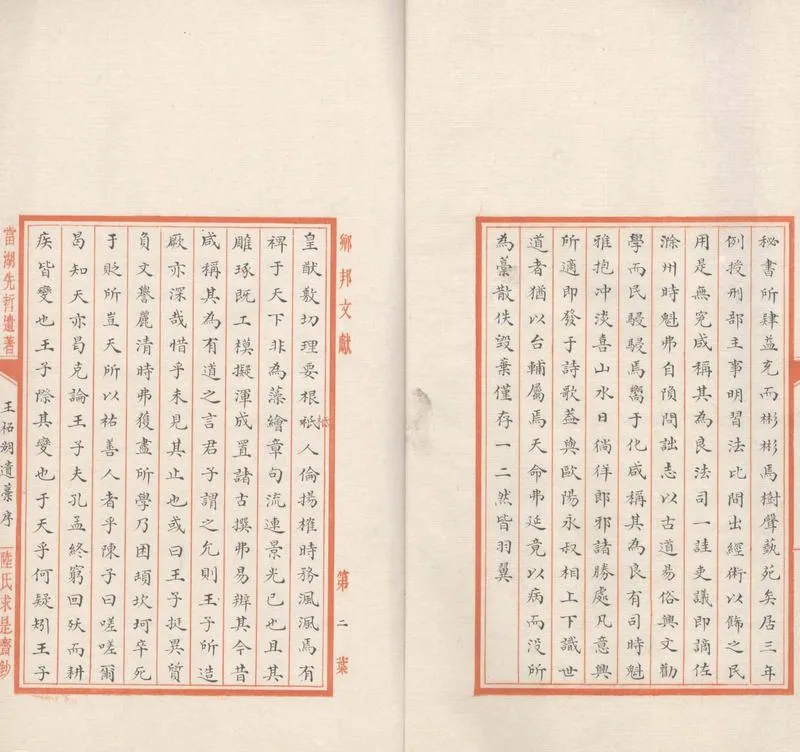 秘書所肆益充而彬彬焉樹聲藝苑矣居三年
例授刑部主事明習法比間出經術以飾之民
用是無冤咸稱其為良法司一詿吏議即謫佐
滁州時魁弗自隕問詘志以古道易俗興文勸
學而民駸駸焉嚮于化咸稱其為良有司時魁
雅抱冲淡喜山水日徜徉郎邪諸勝處凡意興
所適即發于詩歌葢與歐陽永叔相上下識世
道者猶以台輔屬焉天命弗延竟以病而没所
為藁散佚毀棄僅存一二然皆羽翼
鄉邦文獻
第二葉
皇猷敷切理要根祇人倫揚榷時務渢渢焉有
抵
裨于天下非為藻繪章句流連景光已也且其
雕琢既工模擬渾成置諸古撰弗易辦其今昔
咸稱其為有道之言君子謂之允則王子所造
厥亦深哉惜乎未見其止也或曰王子挺異質
負文譽麗清時弗獲盡所學乃困頊坎坷卒死
于貶所豈天所以祐善人者乎陳子曰嗟嗟爾
曷知天亦曷克論王子夫孔孟終窮回殀而耕
疾皆變也王子際其變也于天乎何疑矧王子
當湖先哲遺著
王柘湖遺藁序
陸氏求是齋鈔